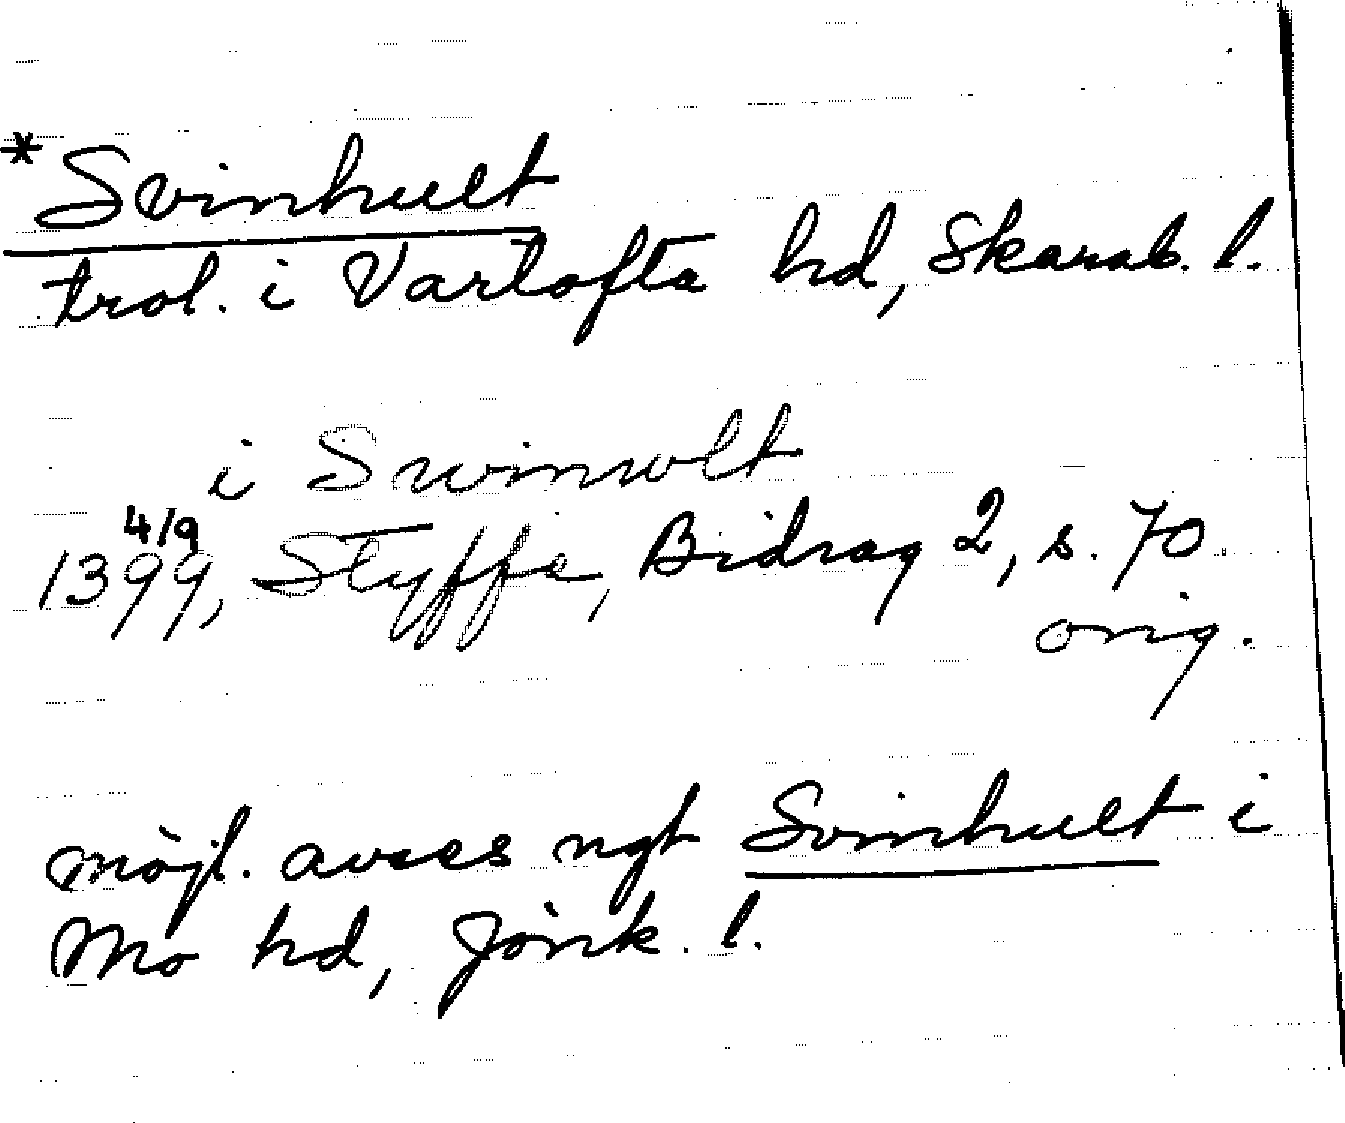 *Svinhult
trol. i Vartofta hd, Skarab. l.
i Swinwlt
4/9
1399, Styffe, Bidrag 2, s. 70
orig.
möjl. avses ngt Svinhult i
Mo hd, Jönk. l.